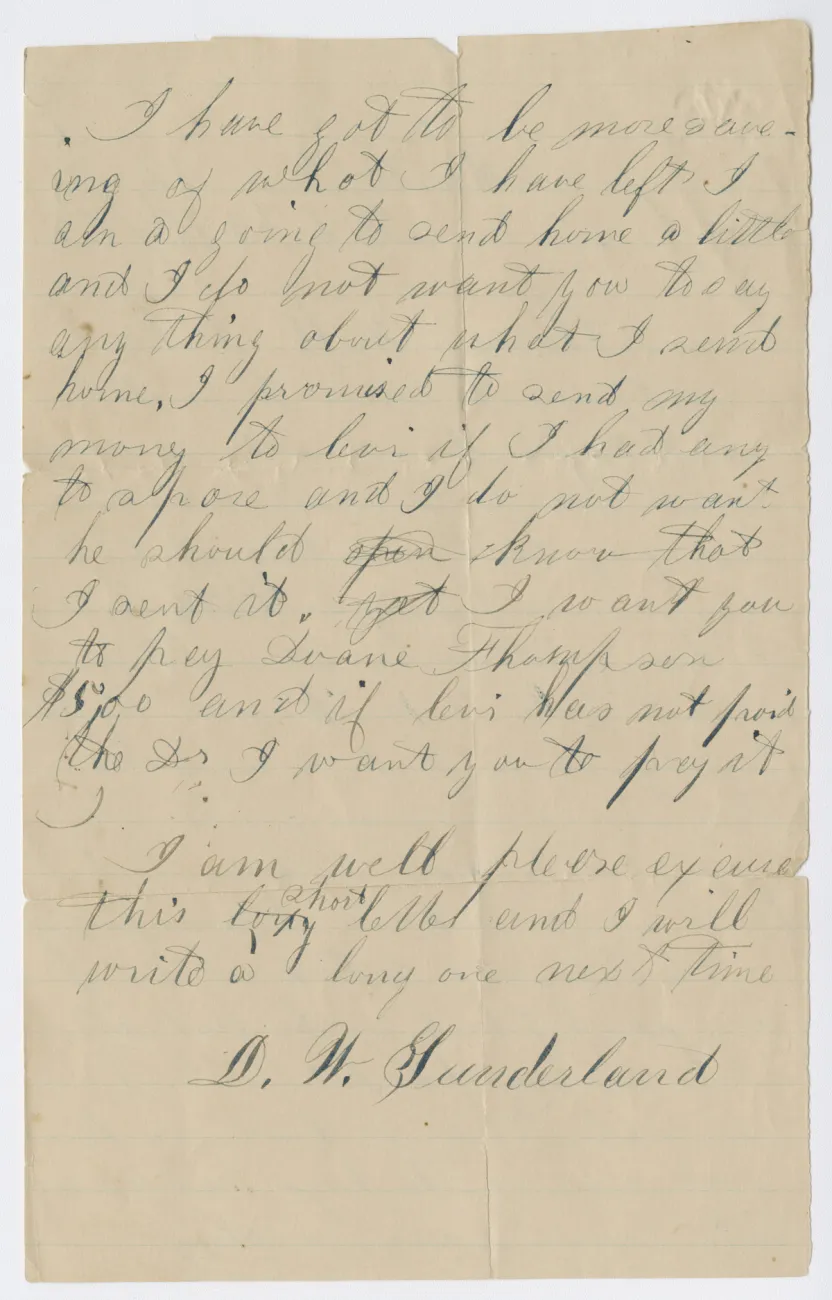 . I have got to be more save-
ing of what I have left I
am a going to send home a little
and I do not want you to say
any thing about what I send
home, I promised to send my
mony to levi if I had any
to spare and I do not want
he should know that
I sent it. yet I want you
to pay Duane Thompson
$5,00 and if levi has not paid
the Dr I want you to pay it
I am well please excuse
this long short letter and I will
write a long one next time
D. W. Sunderland